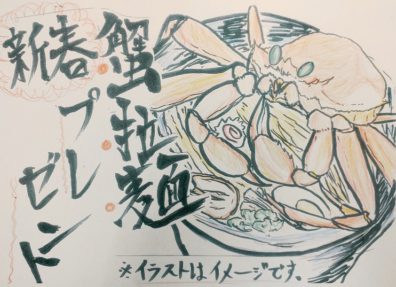 新春
蟹拉麺
プレゼント
※イラストはイメージです。